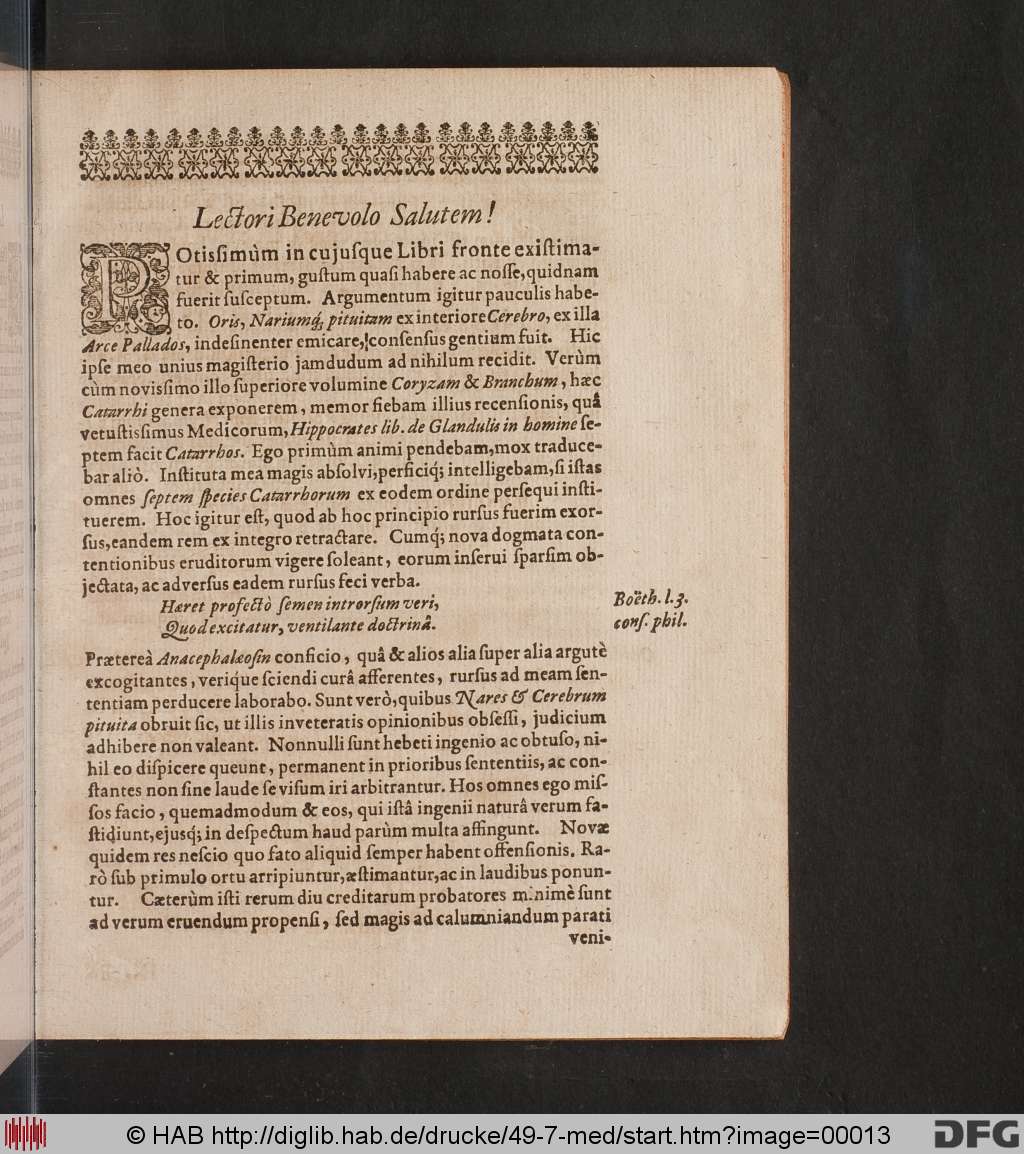 Lectori Benevolo Salutem!
POtisſimùm in cujuſque Libri fronte exiſtima-
tur & primum, guſtum quaſi habere ac noſſe, quidnam
fuerit ſuſceptum. Argumentum igitur pauculis habe-
to. Oris, Nariumq́; pituitam ex interiore Cerebro, ex illa
Arce Pallados, indeſinenter emicare, conſenſus gentium fuit. Hic
ipſe meo unius magiſterio jamdudum ad nihilum recidit. Verùm
cùm novisſimo illo ſuperiore volumine Coryzam & Branchum, hæc
Catarrhi genera exponerem, memor fiebam illius recenſionis, quâ
vetuſtisſimus Medicorum, Hippocrates lib. de Glandulis in homine ſe-
ptem facit Catarrhos. Ego primùm animi pendebam, mox traduce-
bar aliò. Inſtituta mea magis abſolvi, perficiq́; intelligebam, ſi iſtas
omnes ſeptem ſpecies Catarrhorum ex eodem ordine perſequi inſti-
tuerem. Hoc igitur eſt, quod ab hoc principio rurſus fuerim exor-
ſus, eandem rem ex integro retractare. Cumq́; nova dogmata con-
tentionibus eruditorum vigere ſoleant, eorum inſerui ſparſim ob-
jectata, ac adverſus eadem rurſus feci verba.
Hæret profectò ſemen introrſum veri,
Quod excitatur, ventilante doctrinâ.
Boëth. l. 3.
conſ. phil.
Prætereà Anacephalæoſin conficio, quâ & alios alia ſuper alia argutè
excogitantes, verique ſciendi curâ afferentes, rurſus ad meam ſen-
tentiam perducere laborabo. Sunt verò, quibus Nares & Cerebrum
pituita obruit ſic, ut illis inveteratis opinionibus obſeſſi, judicium
adhibere non valeant. Nonnulli ſunt hebeti ingenio ac obtuſo, ni-
hil eo diſpicere queunt, permanent in prioribus ſententiis, ac con-
ſtantes non ſine laude ſe viſum iri arbitrantur. Hos omnes ego miſ-
ſos facio, quemadmodum & eos, qui iſtâ ingenii naturâ verum fa-
ſtidiunt, ejusq́; in deſpectum haud parùm multa affingunt. Novæ
quidem res neſcio quo fato aliquid ſemper habent offenſionis. Ra-
rò ſub primulo ortu arripiuntur, æſtimantur, ac in laudibus ponun-
tur. Cæterùm iſti rerum diu creditarum probatores minimè ſunt
ad verum eruendum propenſi, ſed magis ad calumniandum parati
veni-
© HAB http://diglib.hab.de/drucke/49-7-med/start.htm?image=00013
DFG